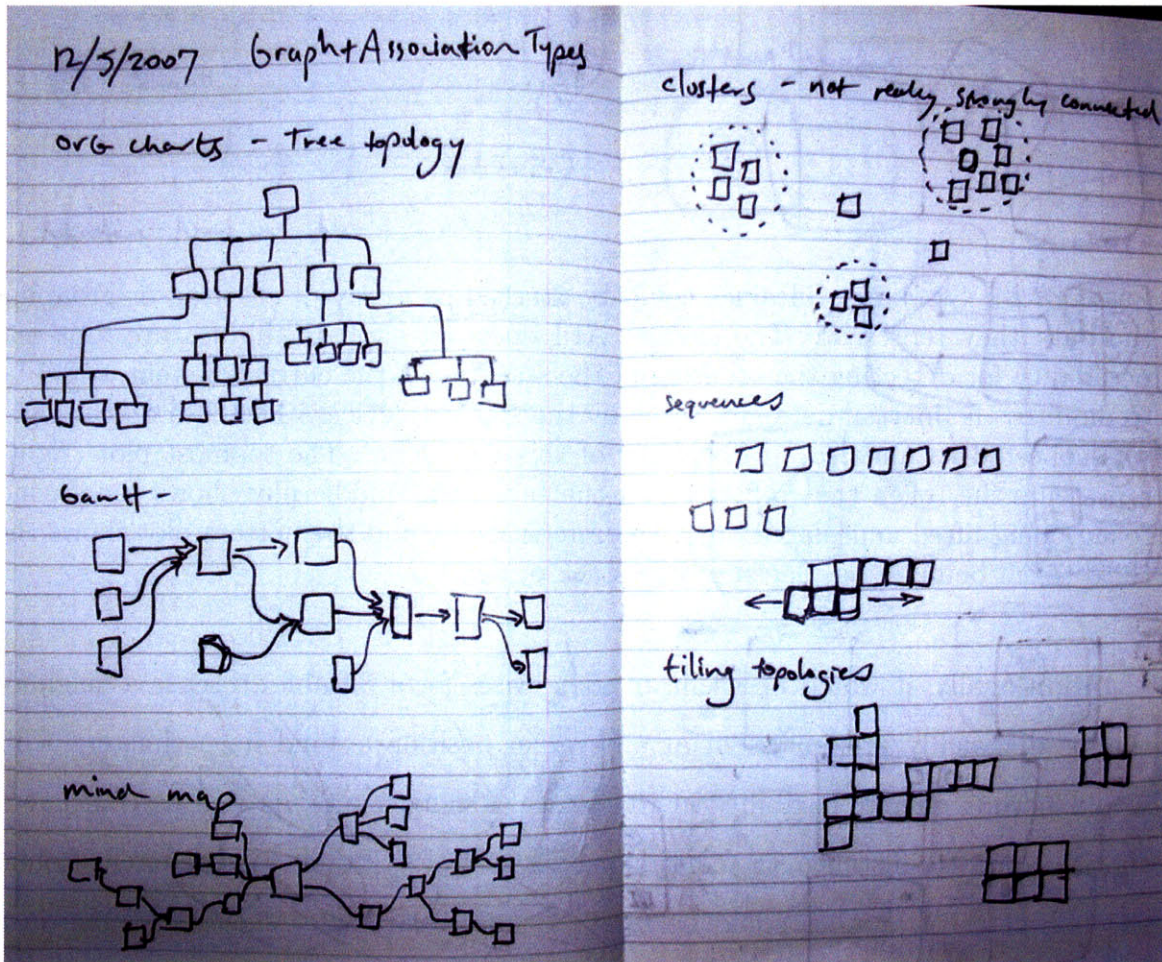 12/5/2007 Graph + Association Types
org charts - Tree topology
Gantt -
mind map
clusters - not really strongly connected
sequences
tiling topologies